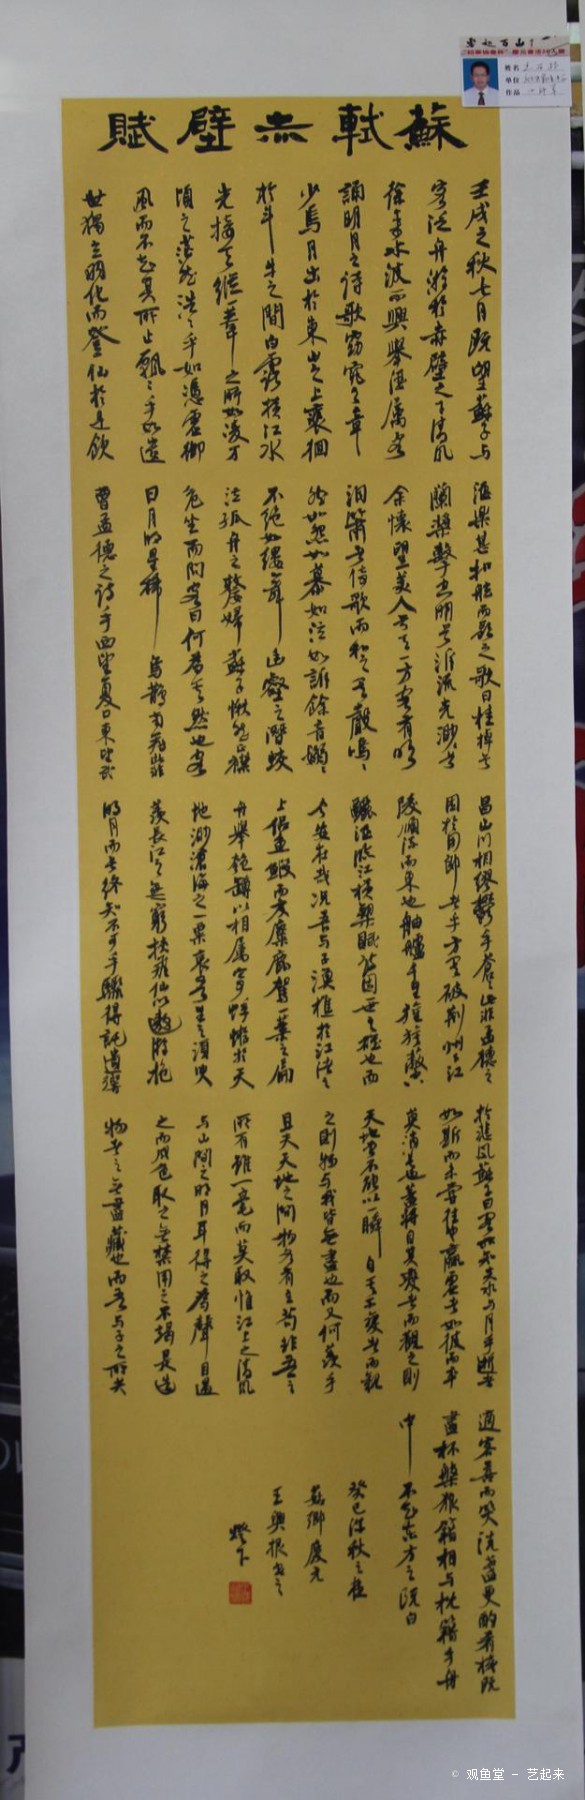 蘇軾赤壁賦
壬戌之秋七月既望蘇子与
客泛舟游於赤壁之下清風
徐来水波不興舉酒属客
誦明月之诗歌窈窕之章
少焉月出於東山之上裵徊
於斗牛之間白露横江水
光接天縱一葦之所如凌万
頃之茫然浩〻乎如馮虚御
風而不知其所止飘〻乎如遗
世獨立羽化而登仙於是飲
酒樂甚扣舷而歌之歌曰桂棹兮
蘭槳擊空明兮泝流光渺〻兮
余懷望美人兮天一方客有吹
洞簫者倚歌而和之其聲嗚〻
然如怨如慕如泣如訴餘音嫋〻
不绝如缕舞幽壑之潜蛟
泣孤舟之嫠婦蘇子愀然正襟
危坐而問客曰何為其然也客
曰月明星稀烏鵲南飛此非
曹孟德之诗乎西望夏口東望武
昌山川相缪鬱乎蒼〻此非孟德之
困於周郎者乎方其破荆州下江
陵順流而東也舳艫千里旌旗蔽空
釃酒临江横槊賦诗固一世之雄也而
今安在哉况吾与子漁樵於江渚之
上侣魚蝦而友麋鹿駕一葉之扁
舟舉匏樽以相属寄蜉蝣於天
地渺滄海之一粟哀吾生之須臾
羨長江之無窮挟飛仙以遨游抱
明月而长终知不可乎驟得託遺響
於悲風蘇子曰客亦知夫水与月乎逝者
如斯而未嘗往也贏虚者如彼而卒
莫消长也蓋将自其變者而觀之则
天地曾不能以一瞬自其不變者而觀
之则物与我皆無盡也而又何羨乎
且夫天地之間物各有主苟非吾之
所有雖一毫而莫取惟江上之清風
与山間之明月耳得之為聲目遇
之而成色取之無禁用之不竭是造
物者之無盡藏也而吾与子之所共
適客喜而笑洗盞更酌肴核既
盡杯盤狼籍相与枕籍乎舟
中不知東方之既白
癸巳深秋之夜
慶元
王興根书之
燈下
姓名
单位
作品
© 观鱼堂 - 艺起来